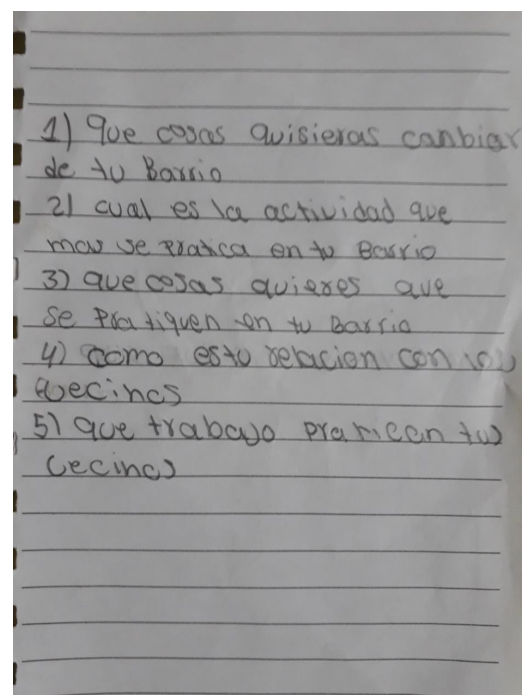 1) que cosas quisieras canbiar
de tu Barrio
2) cual es la actividad que
mas se pratica en tu Barrio
3) que cosas quieres que
se pratiquen en tu Barrio
4) como estu relacion con los
vecinos
5) que trabajo pratican tus
vecinos